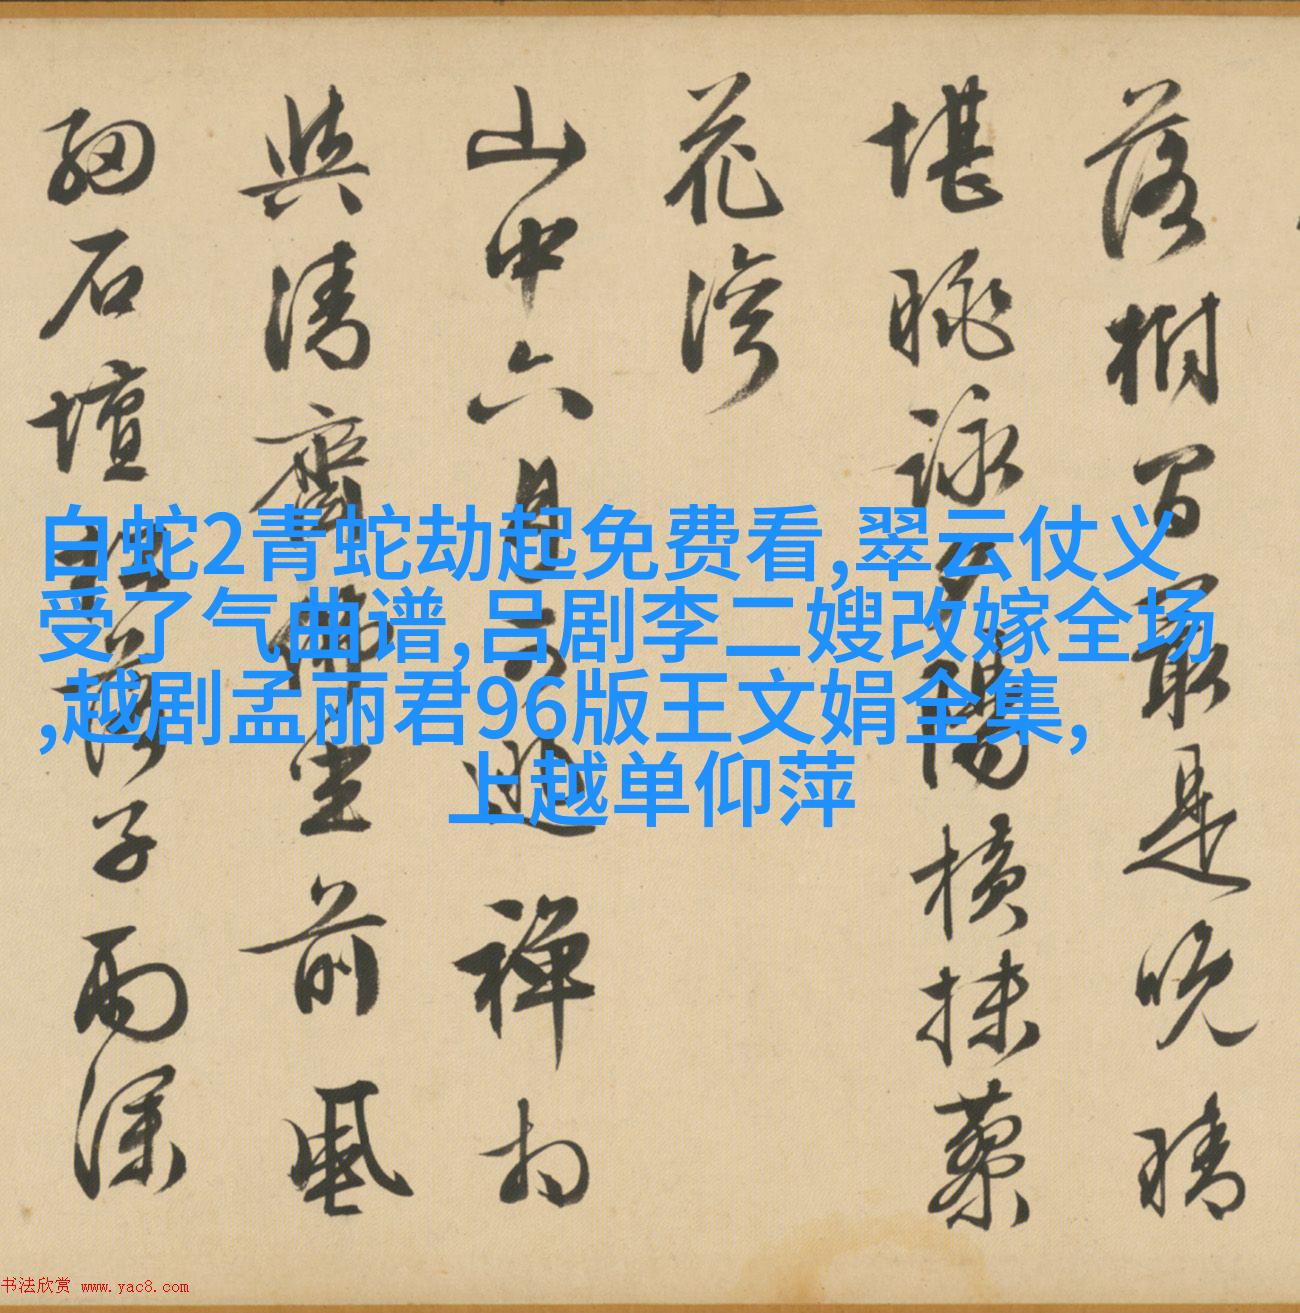 落樹百最是晚晴
堪眺詠夕陽橫抹藜
花湾
山中六月可逃禪力
与清齋佛坐前風
細石壇松落子雨深
白蛇2青蛇劫起免费看,翠云仗义
受了气曲谱,吕剧李二嫂改嫁全场
,越剧孟丽君96版王文娟全集,
上越单仰萍
书法欣赏 www.yac8.com